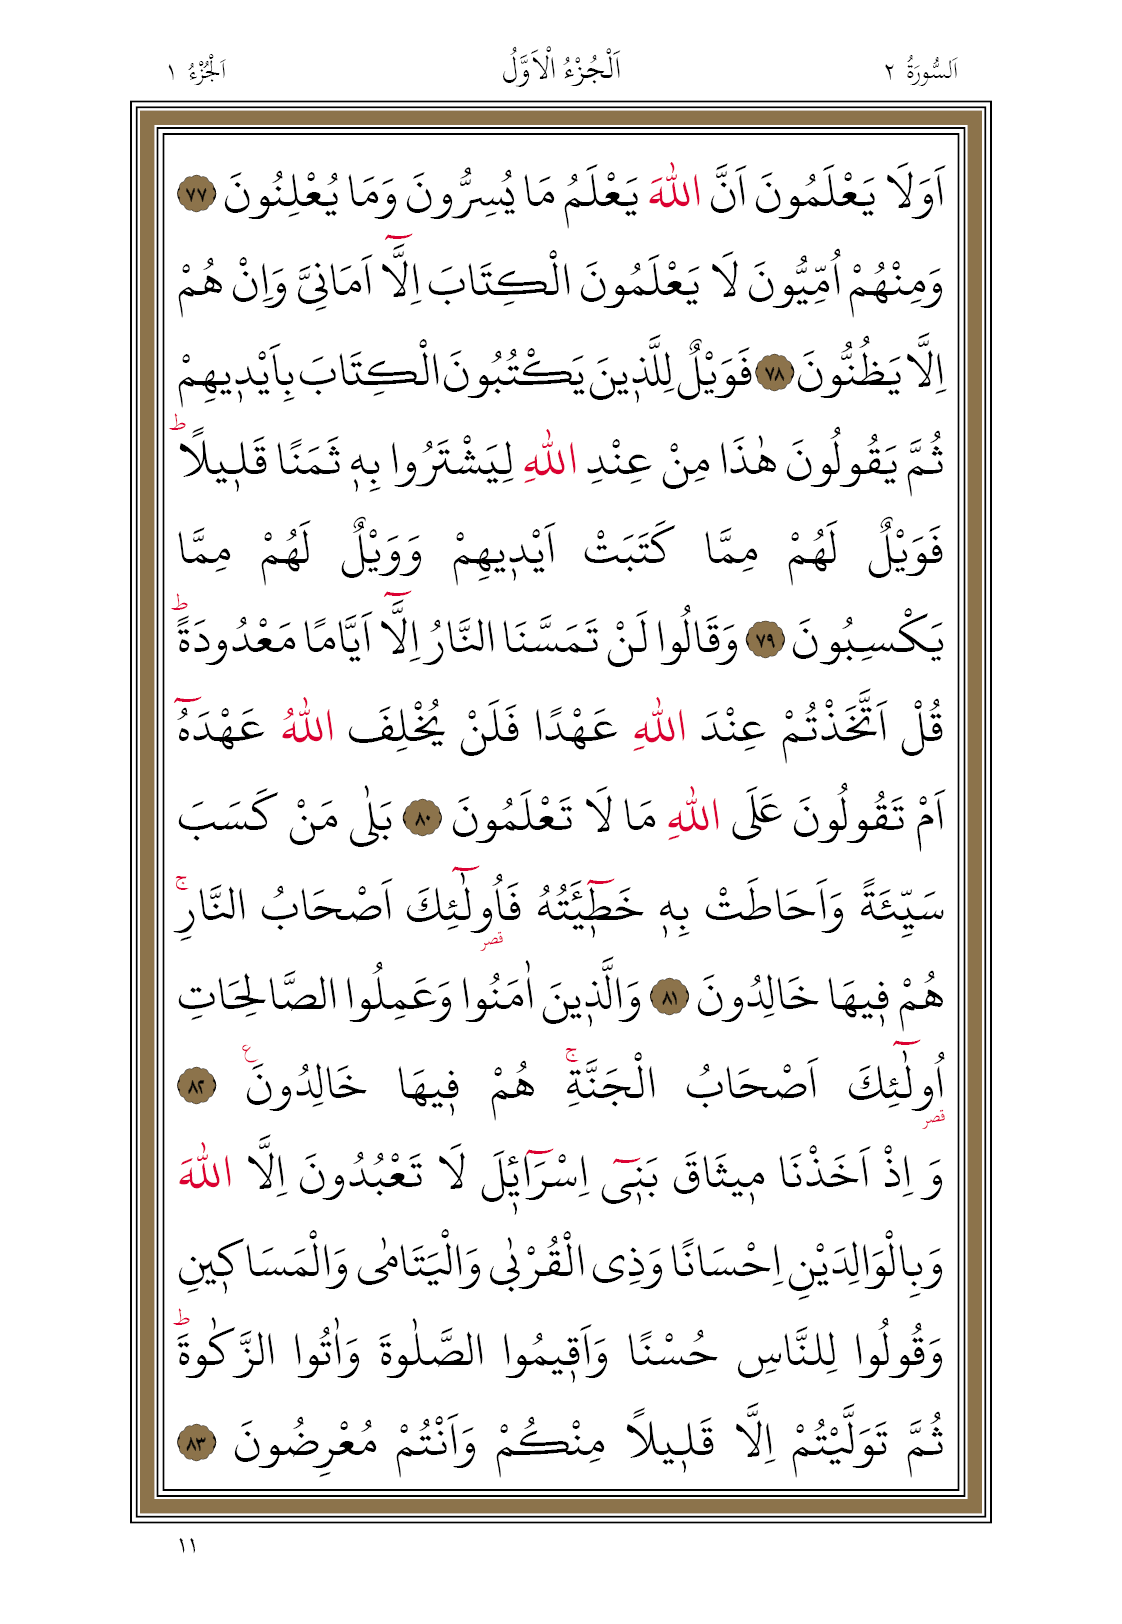 اَلسُّورَةُ ٢ اَلْجُزْءُ الْاَوَّلُ اَلْجُزْءُ ١
اَوَلَا يَعْلَمُونَ اَنَّ اللّٰهَ يَعْلَمُ مَا يُسِرُّونَ وَمَا يُعْلِنُونَ ٧٧
وَمِنْهُمْ اُمِّيُّونَ لَا يَعْلَمُونَ الْكِتَابَ اِلَّٓا اَمَانِيَّ وَاِنْ هُمْ
اِلَّا يَظُنُّونَ ٧٨ فَوَيْلٌ لِلَّذ۪ينَ يَكْتُبُونَ الْكِتَابَ بِاَيْد۪يهِمْ
ثُمَّ يَقُولُونَ هٰذَا مِنْ عِنْدِ اللّٰهِ لِيَشْتَرُوا بِه۪ ثَمَنًا قَل۪يلًاؕ
فَوَيْلٌ لَهُمْ مِمَّا كَتَبَتْ اَيْد۪يهِمْ وَوَيْلٌ لَهُمْ مِمَّا
يَكْسِبُونَ ٧٩ وَقَالُوا لَنْ تَمَسَّنَا النَّارُ اِلَّٓا اَيَّامًا مَعْدُودَةًؕ
قُلْ اَتَّخَذْتُمْ عِنْدَ اللّٰهِ عَهْدًا فَلَنْ يُخْلِفَ اللّٰهُ عَهْدَهُٓ
اَمْ تَقُولُونَ عَلَى اللّٰهِ مَا لَا تَعْلَمُونَ ٨٠ بَلٰى مَنْ كَسَبَ
سَيِّئَةً وَاَحَاطَتْ بِه۪ خَط۪ٓيـَٔتُهُ فَاُو۬لٰٓئِكَ اَصْحَابُ النَّارِۚ
قصر
هُمْ ف۪يهَا خَالِدُونَ ٨١ وَالَّذ۪ينَ اٰمَنُوا وَعَمِلُوا الصَّالِحَاتِ
اُو۬لٰٓئِكَ اَصْحَابُ الْجَنَّةِۚ هُمْ ف۪يهَا خَالِدُونَ ع ٨٢
قصر
وَ اِذْ اَخَذْنَا م۪يثَاقَ بَن۪ٓى اِسْرَٓاء۪يلَ لَا تَعْبُدُونَ اِلَّا اللّٰهَ
وَبِالْوَالِدَيْنِ اِحْسَانًا وَذِى الْقُرْبٰى وَالْيَتَامٰى وَالْمَسَاك۪ينِ
وَقُولُوا لِلنَّاسِ حُسْنًا وَاَق۪يمُوا الصَّلٰوةَ وَاٰتُوا الزَّكٰوةَؕ
ثُمَّ تَوَلَّيْتُمْ اِلَّا قَل۪يلًا مِنْكُمْ وَاَنْتُمْ مُعْرِضُونَ ٨٣
١١